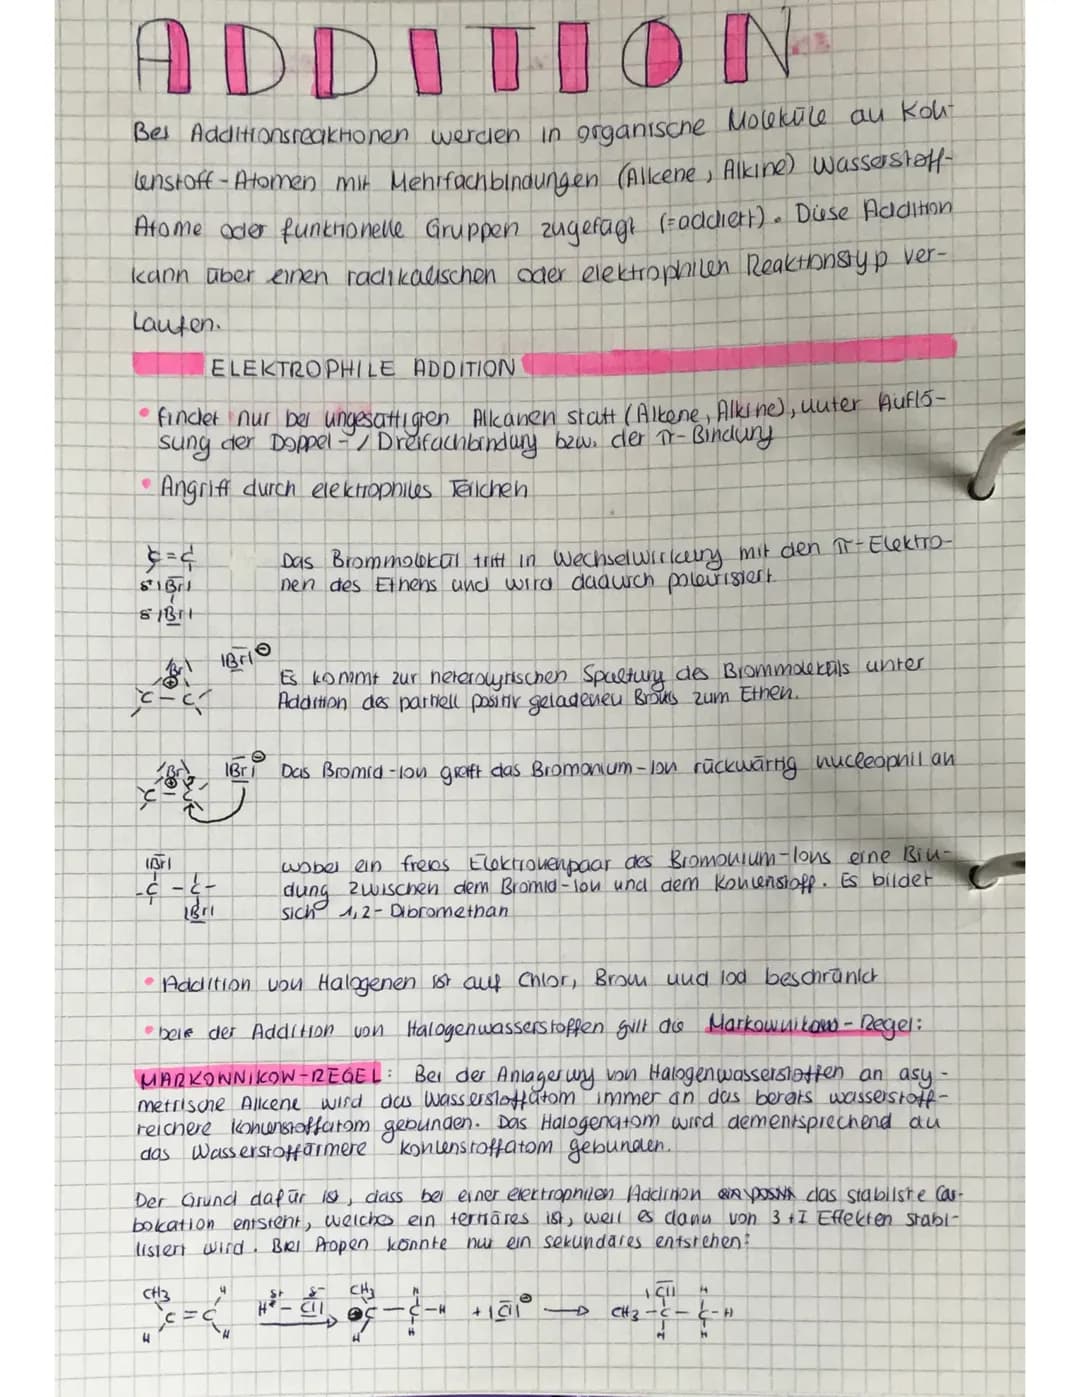 ADDITION
Bei Additionsreaktionen werden in organische Moleküle an Koh-
lenstoff-Atomen mit Mehrfachbindungen (Alkene, Alkine) Wasserstoff-
Atome oder funktionelle Gruppen zugefügt (=addiert). Diese Addition
kann über einen radikalischen oder elektrophilen Reaktionstyp ver-
laufen.
ELEKTROPHILE ADDITION
• findet nur bei ungesättigten Alkanen statt (Alkene, Alkine), unter Auflö-
sung der Doppel-/Dreifachbindung bzw. der π-Bindung
• Angriff durch elektrophiles Teilchen
C=C
δ+ |Br|
δ- |Br|
Das Brommolekül tritt in Wechselwirkung mit den π-Elektro-
nen des Ethens und wird dadurch polarisiert.
|Br| ⊕
C-C
|Br|⊖
Es kommt zur heterolytischen Spaltung des Brommoleküls unter
Addition des partiell positiv geladenen Broms zum Ethen.
|Br| ⊕
C-C
|Br|⊖
Das Bromid-Ion greift das Bromonium-Ion rückwärtig nucleophil an
|Br|
-C-C-
|Br|
wobei ein freies Elektronenpaar des Bromonium-Ions eine Bin-
dung zwischen dem Bromid-Ion und dem Kohlenstoff. Es bildet
sich 1,2-Dibromethan
• Addition von Halogenen ist auf Chlor, Brom und Iod beschränkt
• beie der Addition von Halogenwasserstoffen gilt die Markownikow-Regel:
MARKOWNIKOW-REGEL: Bei der Anlagerung von Halogenwasserstoffen an asy-
metrische Alkene wird das Wasserstoffatom immer an das bereits wasserstoff-
reichere Kohlenstoffatom gebunden. Das Halogenatom wird dementsprechend an
das Wasserstoffärmere Kohlenstoffatom gebunden.
Der Grund dafür ist, dass bei einer elektrophilen Addition das stabilste Car-
bokation entsteht, welches ein tertiäres ist, weil es dann von 3 +I Effekten stabi-
lisiert wird. Bei Propen könnte nur ein sekundäres entstehen:
CH3 H δ+ δ- CH3 H |Cl| H
C=C H-Cl| ⊕C-C-H +|Cl|⊖ → CH3-C-C-H
H H H H H H